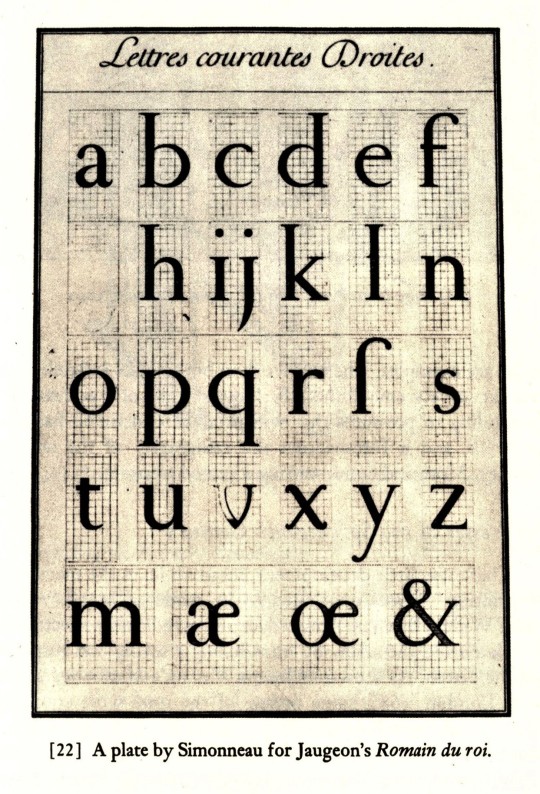 Lettres courantes Droites.
a b c d e f
h i j k l n
o p q r ſ s
t u v x y z
m æ œ &
[22] A plate by Simonneau for Jaugeon's Romain du roi.